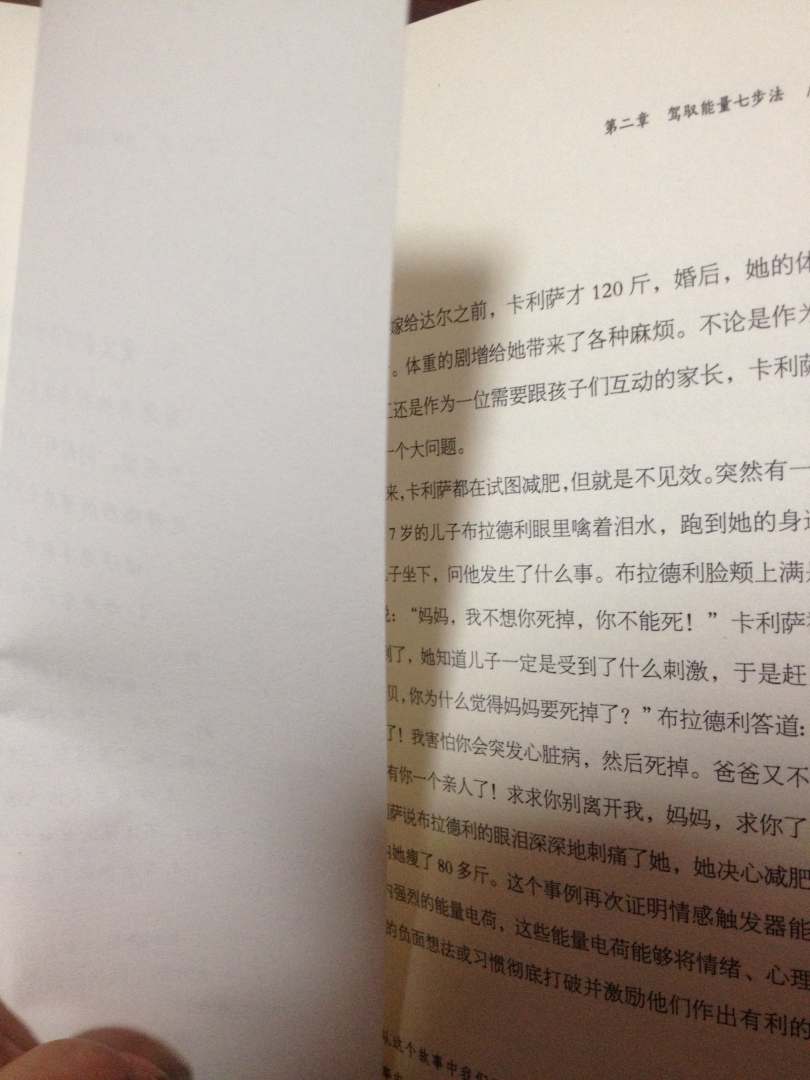 第二章 驾驭能量七步法
嫁给达尔之前，卡利萨才120斤，婚后，她的体
。体重的剧增给她带来了各种麻烦。不论是作为
还是作为一位需要跟孩子们互动的家长，卡利萨
一个大问题。
来，卡利萨都在试图减肥，但就是不见效。突然有一
7岁的儿子布拉德利眼里噙着泪水，跑到她的身边
子坐下，问他发生了什么事。布拉德利脸颊上满是
说：“妈妈，我不想你死掉，你不能死！”卡利萨
到了，她知道儿子一定是受到了什么刺激，于是赶
贝，你为什么觉得妈妈要死掉了？”布拉德利答道：
了！我害怕你会突发心脏病，然后死掉。爸爸又不
有你一个亲人了！求求你别离开我，妈妈，求你了
利萨说布拉德利的眼泪深深地刺痛了她，她决心减肥
内她瘦了80多斤。这个事例再次证明情感触发器能
内强烈的能量电荷，这些能量电荷能够将情绪、心理
的负面想法或习惯彻底打破并激励他们作出有利的
从这个故事中我们